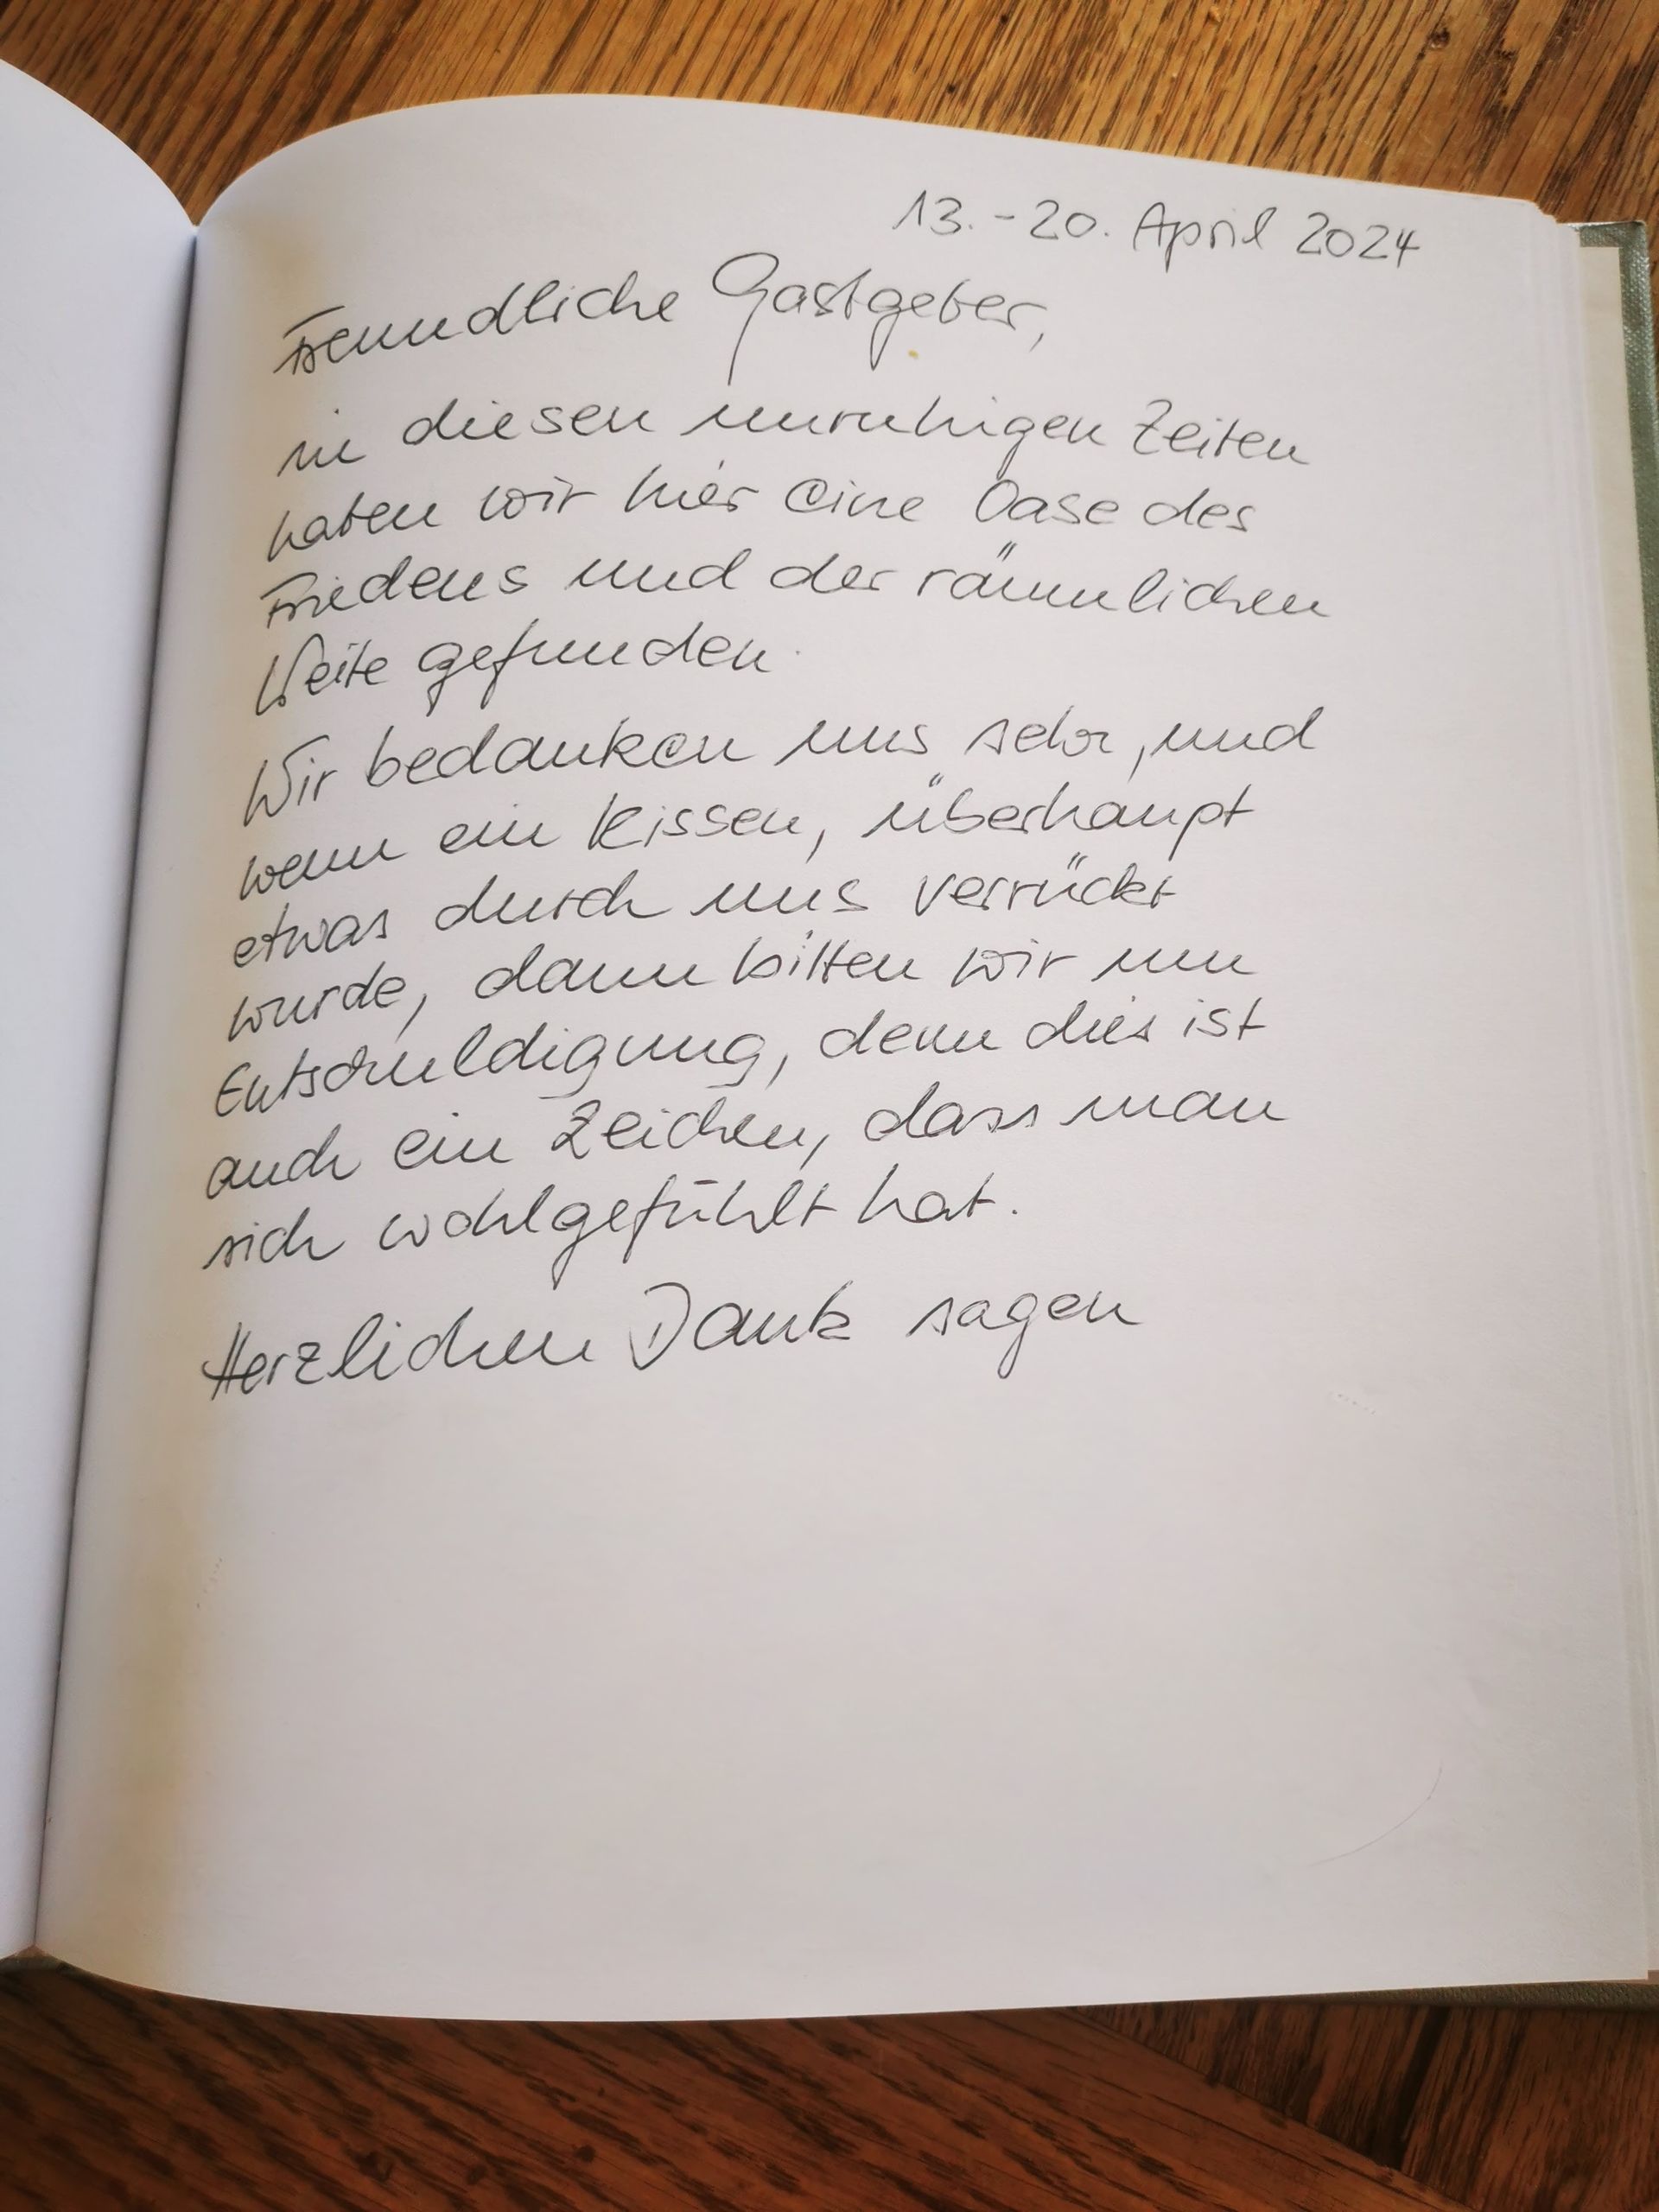 13.-20. April 2024
Freundliche Gastgeber,
in diesen unruhigen Zeiten
haben wir hier eine Oase des
Friedens und der räumlichen
Weite gefunden.
Wir bedanken uns sehr, und
wenn ein Kissen, überhaupt
etwas durch uns verrückt
wurde, dann bitten wir um
Entschuldigung, denn dies ist
auch ein Zeichen, dass man
sich wohlgefühlt hat.
Herzlichen Dank sagen